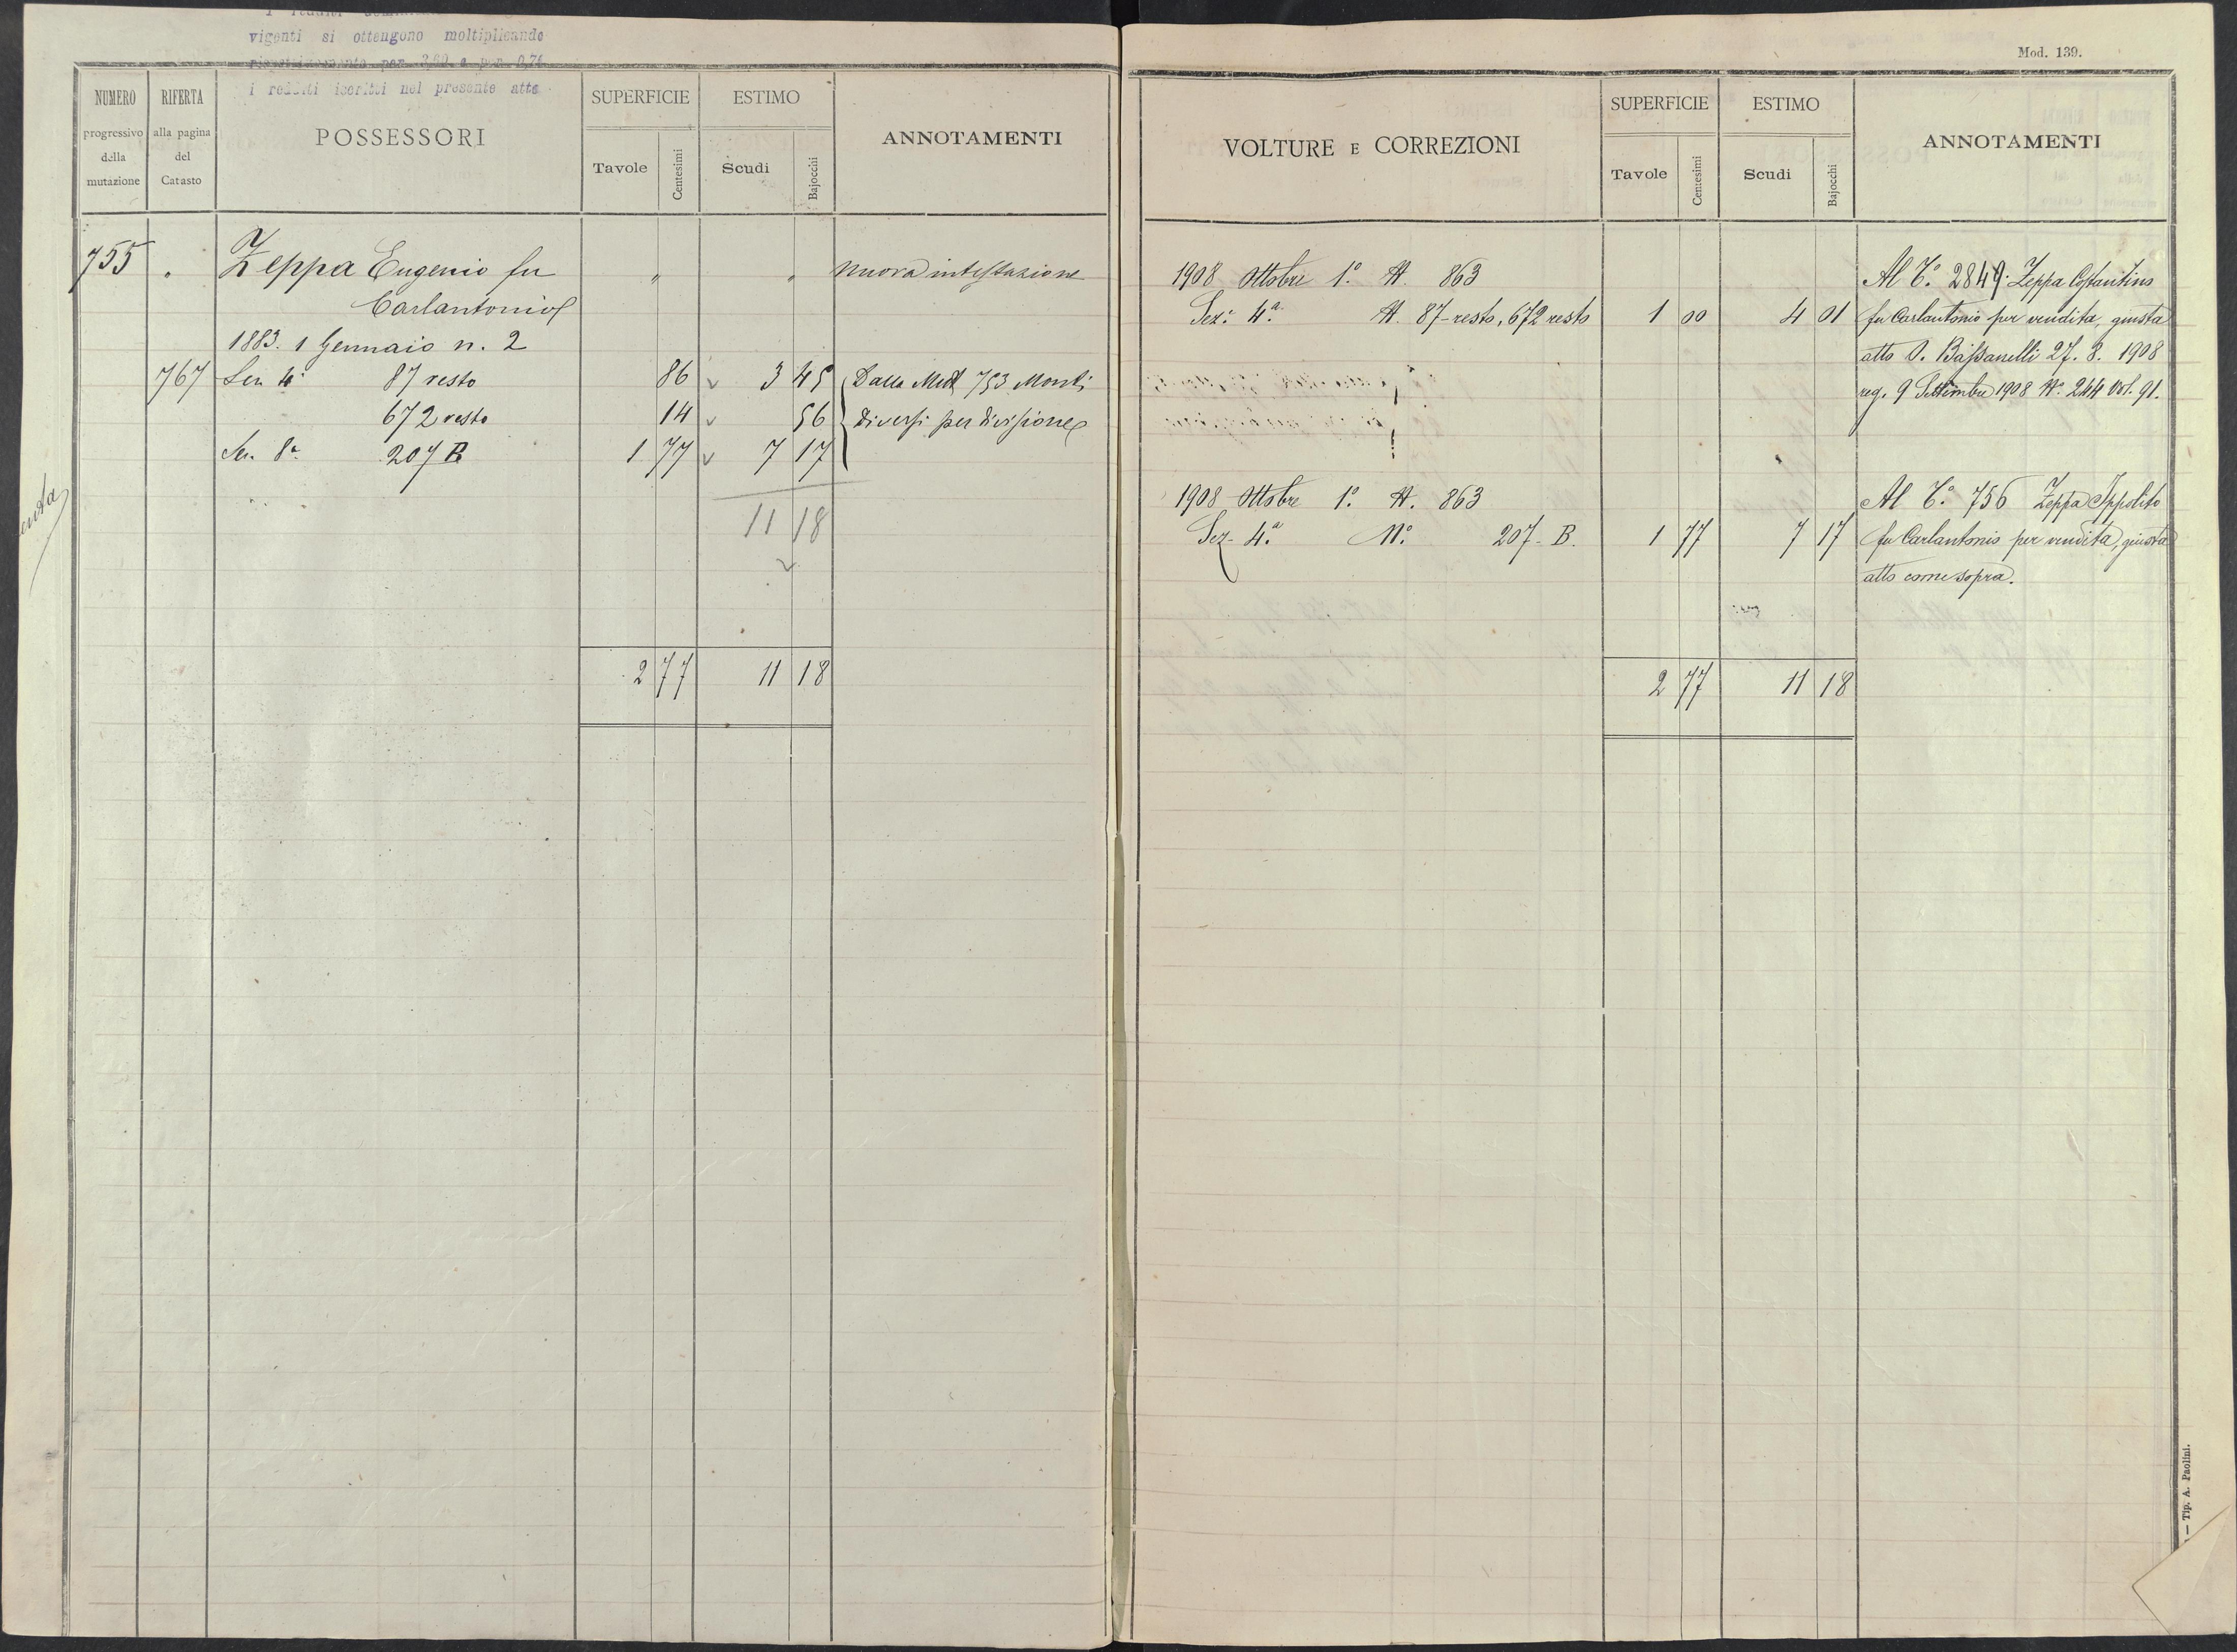 vigenti si ottengono moltiplicando
rispettivamente per 3,80 e per 0,74
i redditi iscritti nel presente atto
NUMERO progressivo della mutazione
RIFERTA alla pagina del Catasto
POSSESSORI
SUPERFICIE
Tavole Centesimi
ESTIMO
Scudi Bajocchi
ANNOTAMENTI
755 " Zeppa Eugenio fu " " nuova intestazione
Carlantonio
1883. 1 Gennaio n. 2
767 Sez. 4ª 87 resto 86 3 45 Dalla Mut 753 Monti
672 resto 14 56 diversi per divisione
Sez. 8ª 207 B 1 77 7 17
11 18
2 77 11 18
Mod. 139.
VOLTURE E CORREZIONI
SUPERFICIE
Tavole Centesimi
ESTIMO
Scudi Bajocchi
ANNOTAMENTI
1908 Ottobre 1.º N. 863 Al C.º 2849. Zeppa Costantino
Sez.e 4ª N. 87-resto, 672 resto 1 00 4 01 fu Carlantonio per vendita, giusta
atto O. Bassanelli 27. 8. 1908
reg. 9 Settembre 1908 Nº 244 Vol. 91.
1908 Ottobre 1.º N. 863 Al C.º 756 Zeppa Ippolito
Sez- 4ª Nº 207- B. 1 77 7 17 fu Carlantonio per vendita, giusta
atto come sopra.
2 77 11 18
— Tip. A. Paolini.